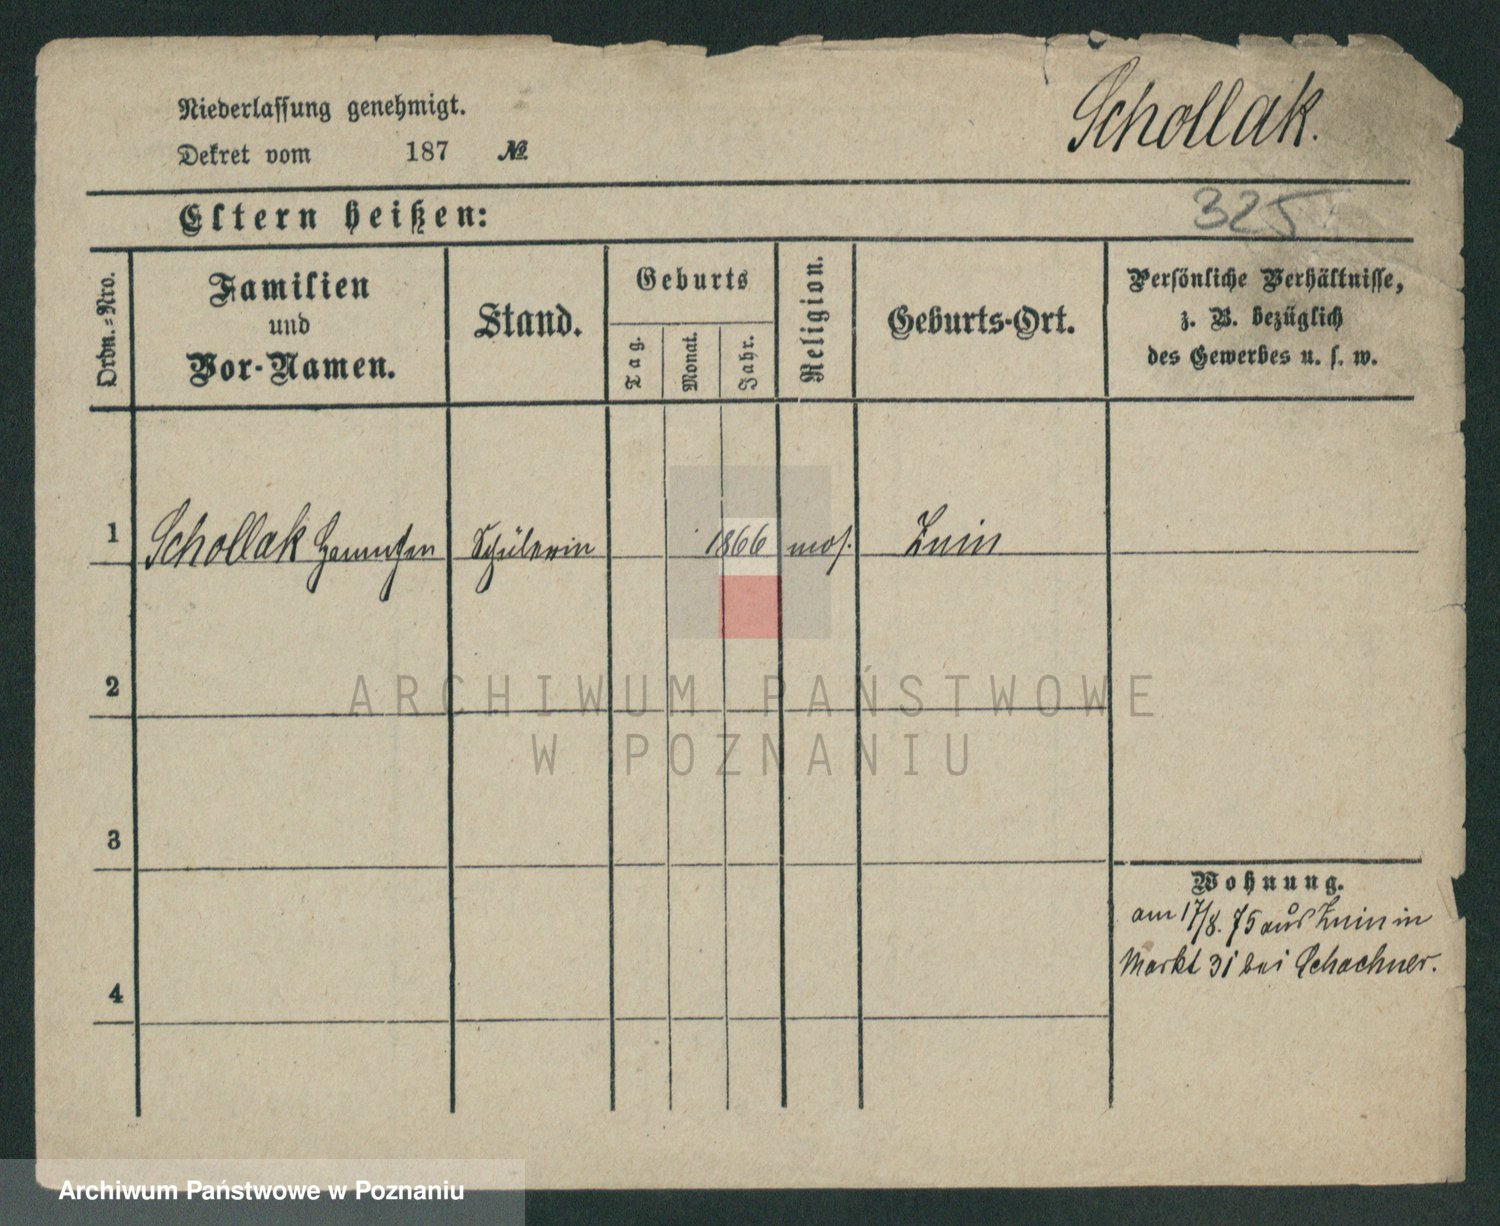 Niederlassung genehmigt.
Dekret vom 187 №
Schollak.
325
Eltern heißen:
Ordn.-Nro.
Familien
und
Vor-Namen.
Stand.
Geburts
Tag.
Monat.
Jahr.
Religion.
Geburts-Ort.
Persönliche Verhältnisse,
z. B. bezüglich
des Gewerbes u. s. w.
1 Schollak Schülerin 1866 mos. Znin
2
3
4
Wohnung.
am 17/8. 75 aus Znin in
Markt 31 bei Schachner.
ARCHIWUM PAŃSTWOWE
W POZNANIU
Archiwum Państwowe w Poznaniu